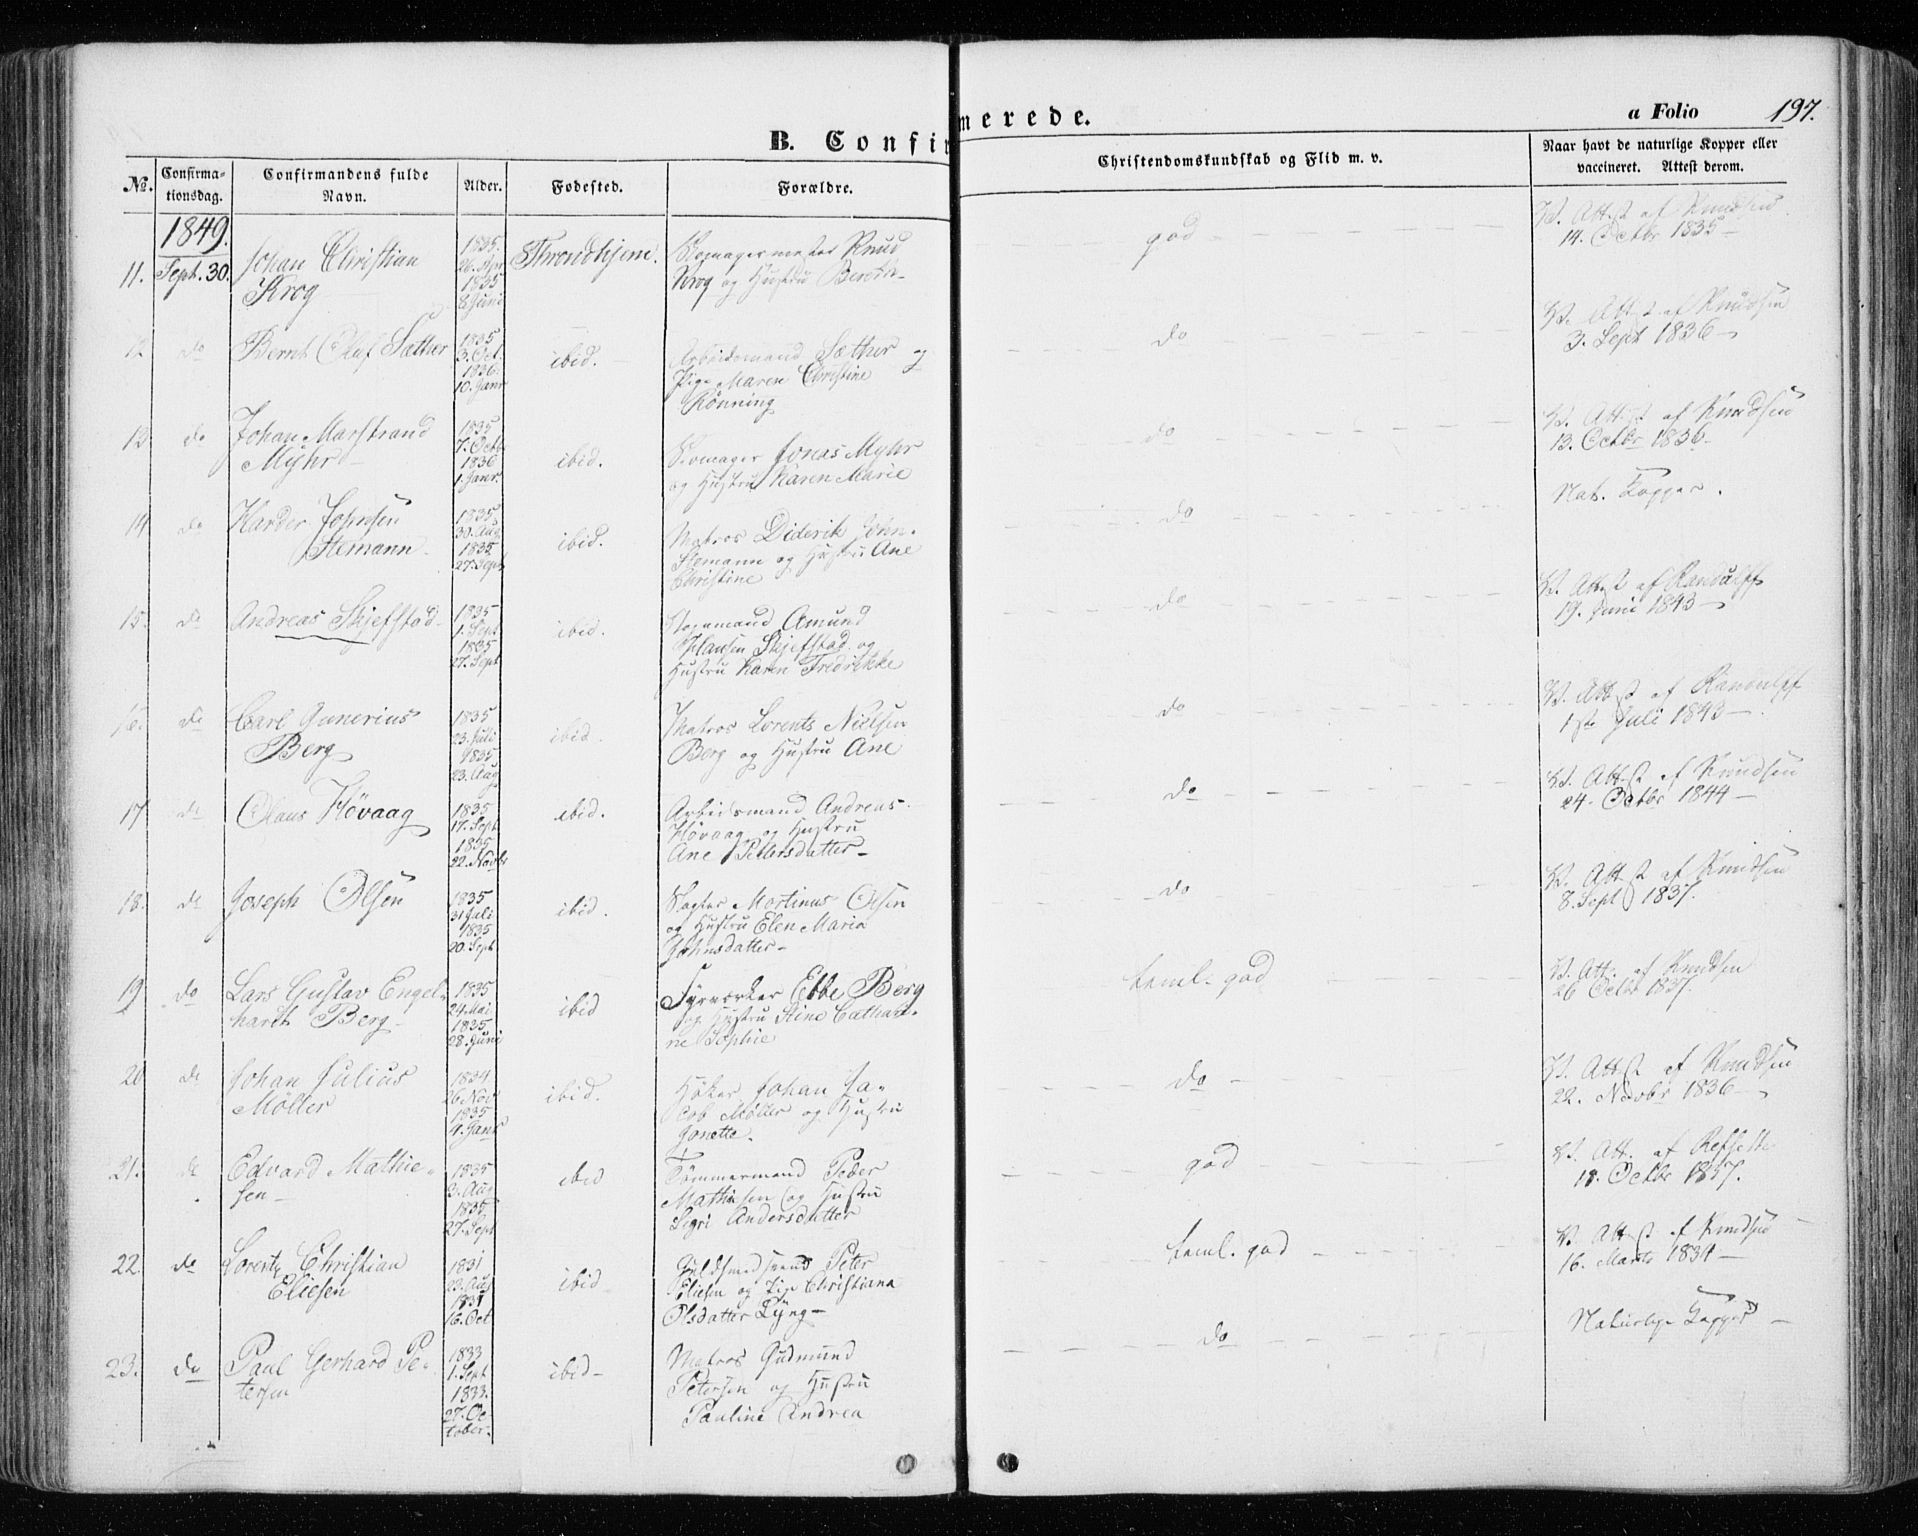 B. Confirmerede.
a Folio 197.
No. Confirmationsdag. Confirmandens fulde Navn. Alder. Fødested. Forældre. Christendomskundskab og Flid m. v. Naar havt de naturlige Kopper eller vaccineret. Attest derom.
1849.
11. Sept. 30. Johan Christian Krog 1835. 26. Apr 1835 8. Juni Throndhjem. Skomagermester Knud Krog og Hustru god V. Attest af Knudsen 14. Octbr 1835
12 do Bernt Oluf Sæther 1835 3. Oct. 1836. 10. Janr ibid. Arbeidsmand Sæther og Pige Maren Christine Rønning do V. Attest af Knudsen 3. Sept 1836
13 do Johan Marstrand Myhr 1835 7. Octb 1836 1. Janr. ibid. Skomager Jonas Myhr og Hustru Karen Marie do V. Attest af Knudsen 13. Octbr 1836
14 do Harder Johnsen Stemann 1835 30. Aug 1835 27. Sept ibid. Matros Diderik John. Stemann og Hustru Ane Christine do Nat. Kopper.
15. do Andreas Skjefstad 1835 1. Sept 1835 27. Sept ibid. Amund Skjefstad og Hustru Karen Fredrikke do V. Attest af Randulff 19. Juni 1843
16. do Carl Gunerius Berg 1835 23. Juli 1835 23. Aug ibid. Matros Lorents Nielsen Berg og Hustru Ane do V. Attest af Randulff 1ste Juli 1843
17 do Olaus Høvaag 1835 17. Sept 1835 22. Novbr ibid. Arbeidsmand Andreas Høvaag og Hustru Ane Pettersdatter do V. Attest af Knudsen 24. Octbr 1844
18. do Joseph Olsen 1835 31 Juli 1835 20. Sept ibid. Martinus Olsen og Hustru Elen Maria Johnsdatter do V. Attest af Knudsen 8. Sept 1837.
19 do Lars Gustav Engelhardt Berg 1835 24. Mai 1835 28. Juni ibid Fyrverker Ebbe Berg og Hustru Stine Cathari-ne Sophie teml. god V. Att. af Knudsen 26 Octbr 1837.
20 do Johan Julius Møller 1834 26 Nov 1835 4. Janr ibid. Høker Johan Ja-cob Møller og Hustru Jonette. do V. Attest af Knudsen 22. Novbr 1836
21. do Edvard Mathie-sen 1835 3. Aug 1835 27. Sept ibid Tømmermand Peder Mathiesen og Hustru Sigri Andersdatter god V. Att. af 18. Octbr 1837.
22. do Lorentz Christian Eliesen 1831 23. Aug 1831 16. Oct ibid Guldsmedsvend Peter Eliesen og Pige Christiana Olsdatter Lyng teml. god V. Attest af Knudsen 16. Marts 1834
23. do Paul Gerhard Pe-tersen 1833 1. Sept 1833. 27. Oc-tober. ibid Matros Gudmund Petersen og Hustru Pauline Andrea do Naturlige Kopper